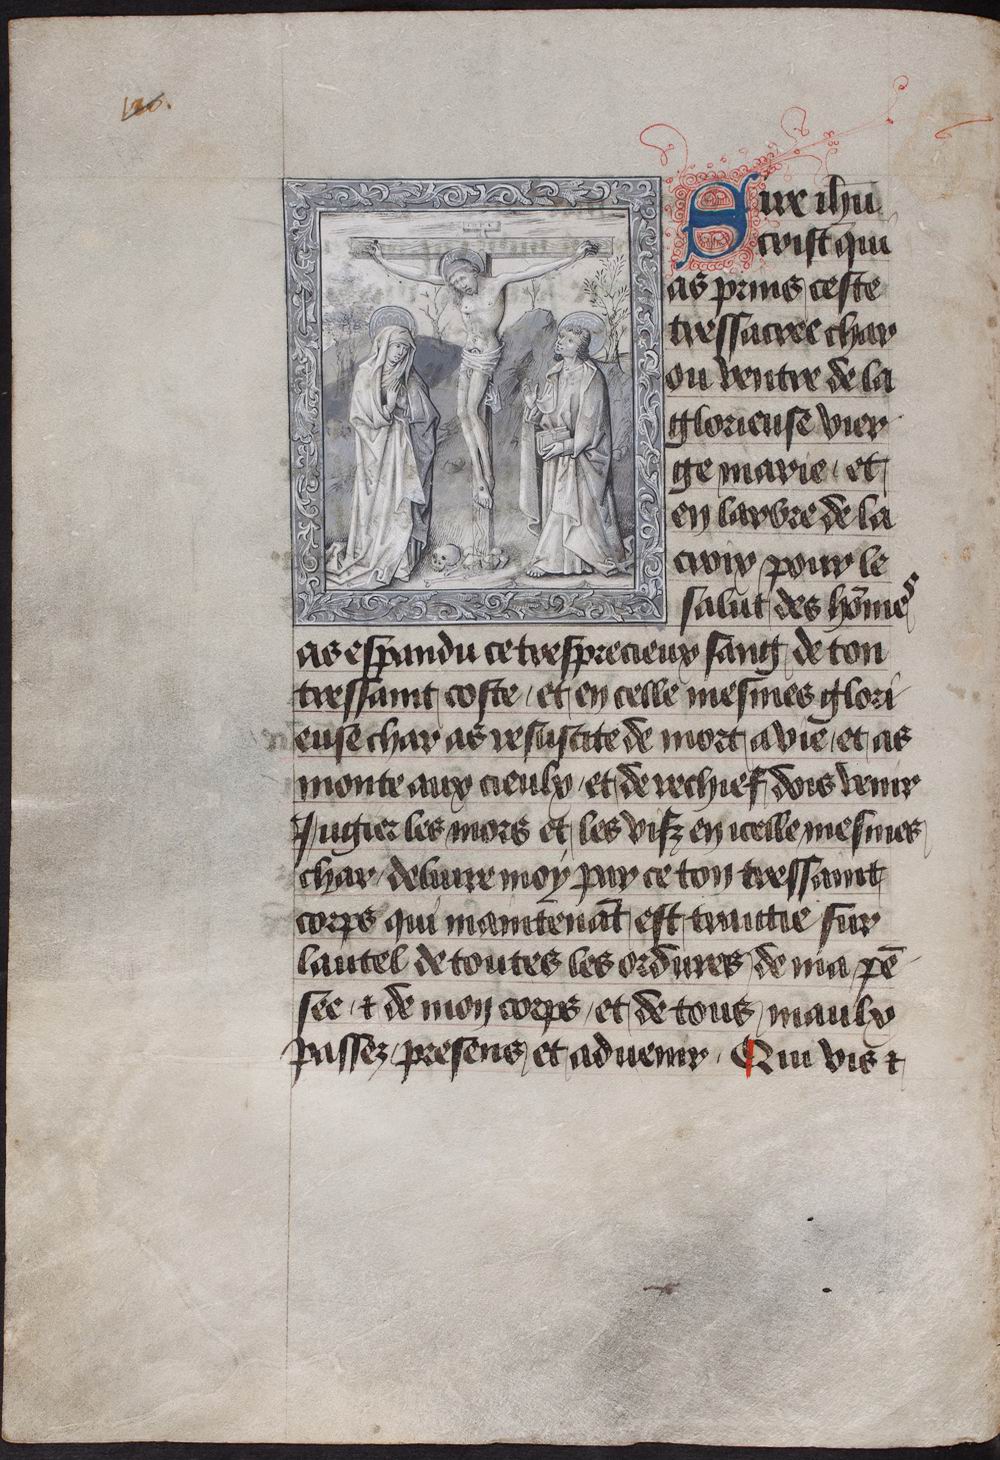 126.
Sire ihu
crist qui
as prins ceste
tressacree char
ou ventre de la
glorieuse vier
ge marie / et
en larbre de la
croix pour le
salut des hōmes
as espandu ce tresprecieux sang de ton
tressaint coste / et en celle mesmes glori
euse char as resuscite de mort a vie / et as
monte aux cieulx / et de rechief dois venir
Jugier les mors et les vifz en icelle mesmes
char / deliure moy par ce ton tressaint
corps qui maintenāt est traittie sur
lautel de toutes les ordures de ma pē
see / ⁊ de mon corps / et de tous maulx
passez / presens et aduenir . Qui vis ⁊